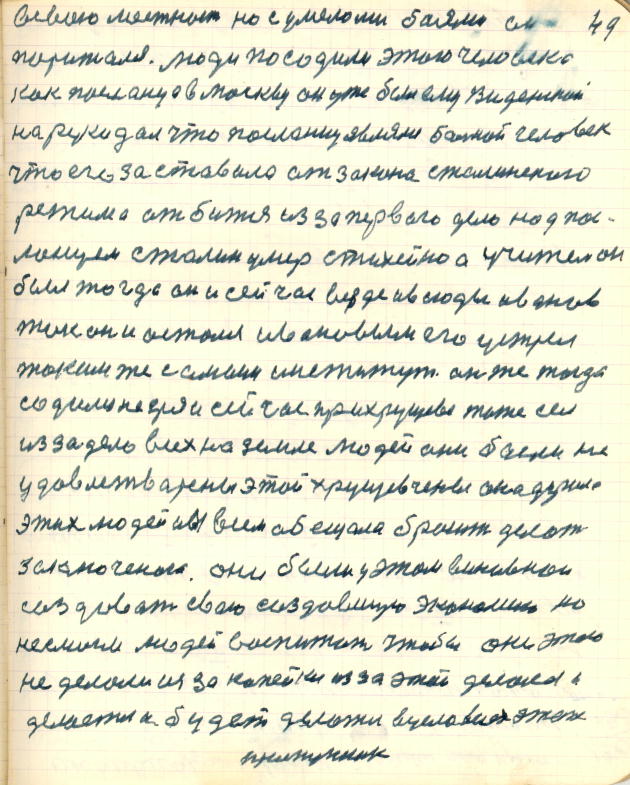 всвою местност но сумеломи баями см 49
поржался. люди посодили этого человека
как посланца в москву он уже был ему виденской
на руко дал что посланцу являля болной человек
что его заставила от закона сталинского
режима отбится из за первого дело над пос-
ланцем сталин умер стихейно а учителем он
был тогда он и сейчас везде и всюды иванов
так он и остался ивановым его
таким же самым институт. он же тогда
содили не зря и сейчас при хрущеве тоже сел
из за дело всех на земле людей они были не
удовлетварены этой хрущевчены она
этих людей всем обещала бросит делат
заключеного. они были у этом виновной
создоват сваю создовшую экономию но
несмогли людей воспитат чтобы они этого
не делоли из за копейки из за этой делоеся и
делается и будет делатся вусловиях этих
преступник